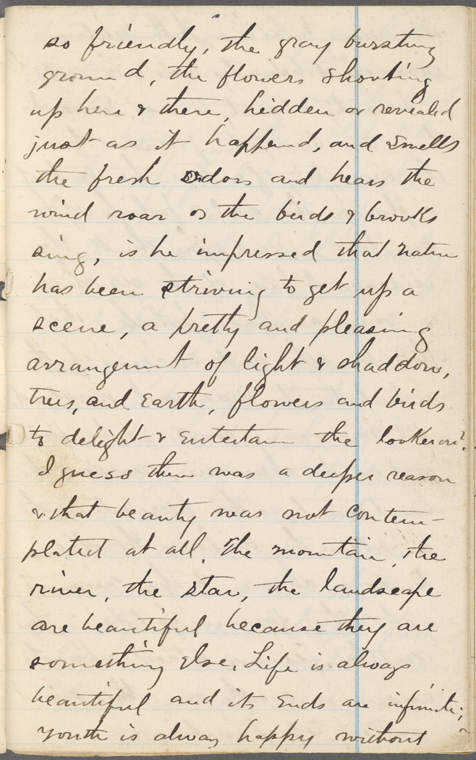 so friendly, the gray bursting
ground, the flowers shooting
up here & there, hidden or revealed
just as it happend, and smells
the fresh odors and hears the
wind roar or the birds & brooks
sing, is he impressed that nature
has been striving to get up a
scene, a pretty and pleasing
arrangement of light & shaddow,
trees, and Earth, flowers and birds
to delight & entertain the looker on?
I guess there was a deeper reason
& that beauty was not contem-
plated at all. The mountain, the
river, the star, the landscape
are beautiful because they are
something else. Life is always
beautiful and its ends are infinite;
youth is always happy without